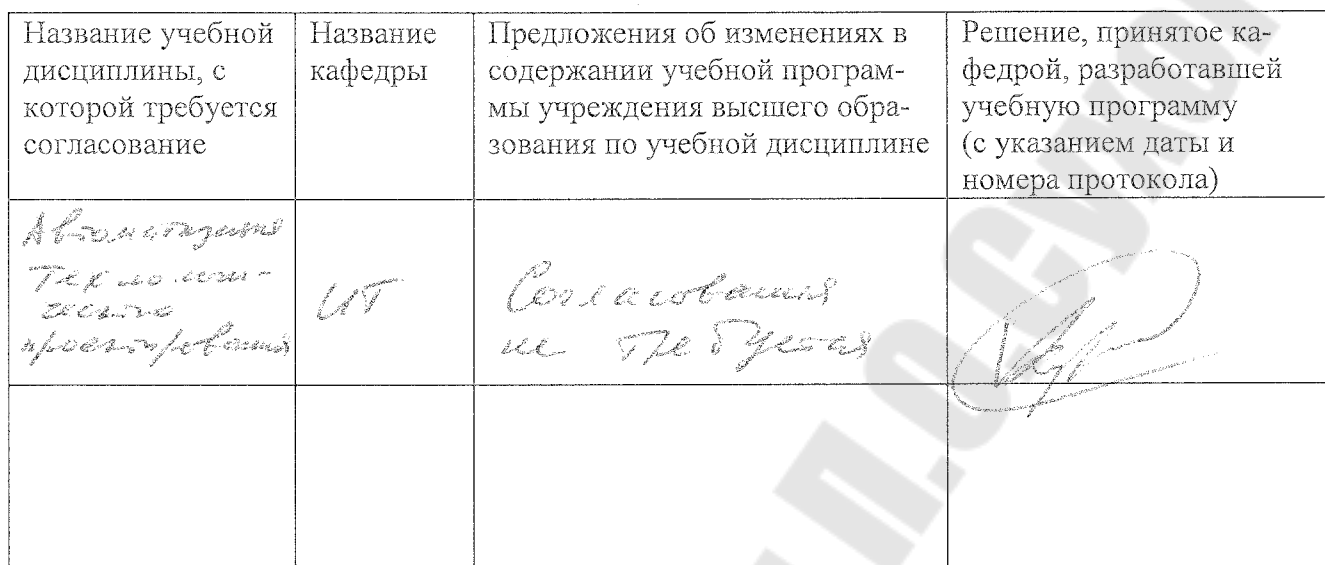 Название учебной
дисциплины, с
которой требуется
согласование
Название
кафедры
Предложения об изменениях в
содержании учебной програм-
мы учреждения высшего обра-
зования по учебной дисциплине
Решение, принятое ка-
федрой, разработавшей
учебную программу
(с указанием даты и
номера протокола)
Автоматизация
Технологи-
ческого
проектирования
ИТ
Согласования
не требуется
П.О.Сухо